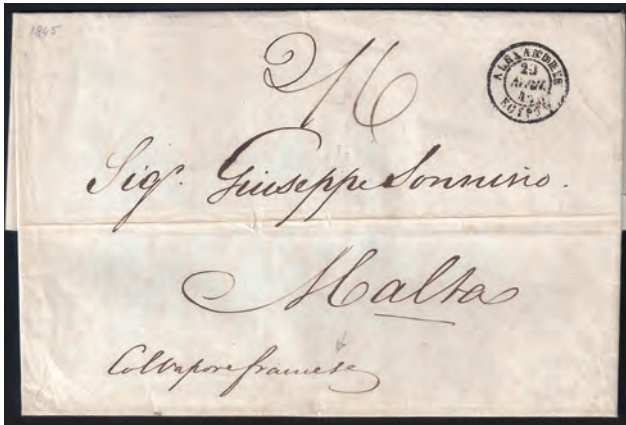 1845
2/6
ALEXANDRIE
EGYPTE
Sigr. Giuseppe Sonnino.
Malta
Col Vapore francese